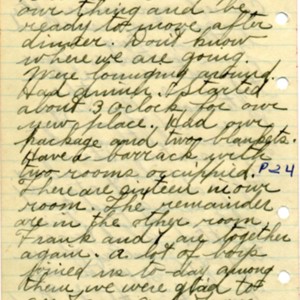 our thing and be
ready to move after
dinner. Dont know
where we are going.
Were lounging around.
Had dinner. Started
about 3 oclock for our
new place. Had our
package and two blankets.
Have a barrack with
two rooms occupied. P24
There are sixteen in our
room. The remainder
are in the other room
Frank and I are together
again. A lot of boys
joined us to-day among
them, we were glad to